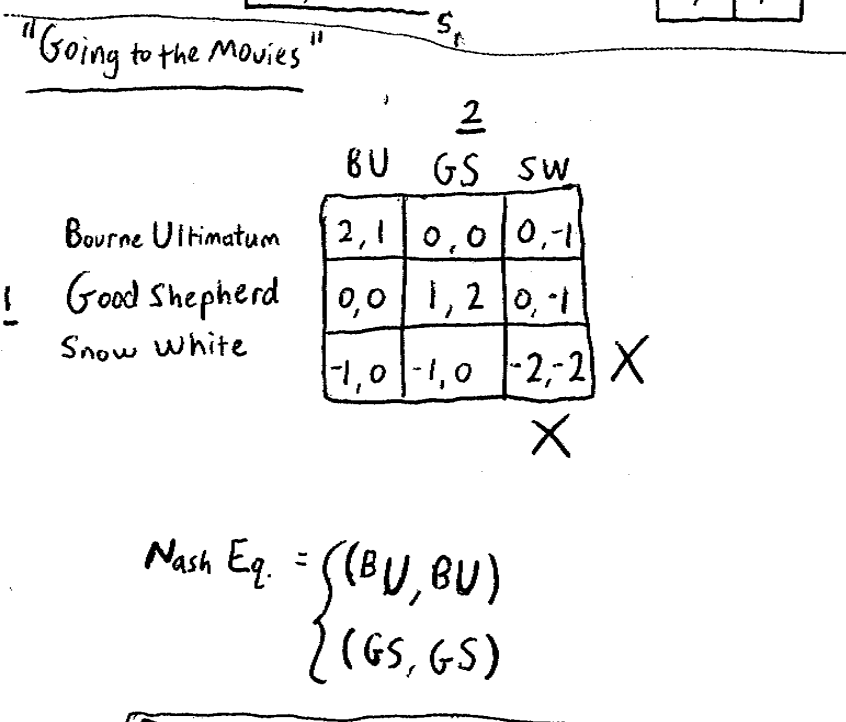 S₁
"Going to the Movies"
2
BU GS SW
Bourne Ultimatum 2,1 0,0 0,-1
1 Good Shepherd 0,0 1,2 0,-1
Snow White -1,0 -1,0 -2,-2 X
X
Nash Eq. = { (BU, BU)
(GS, GS)